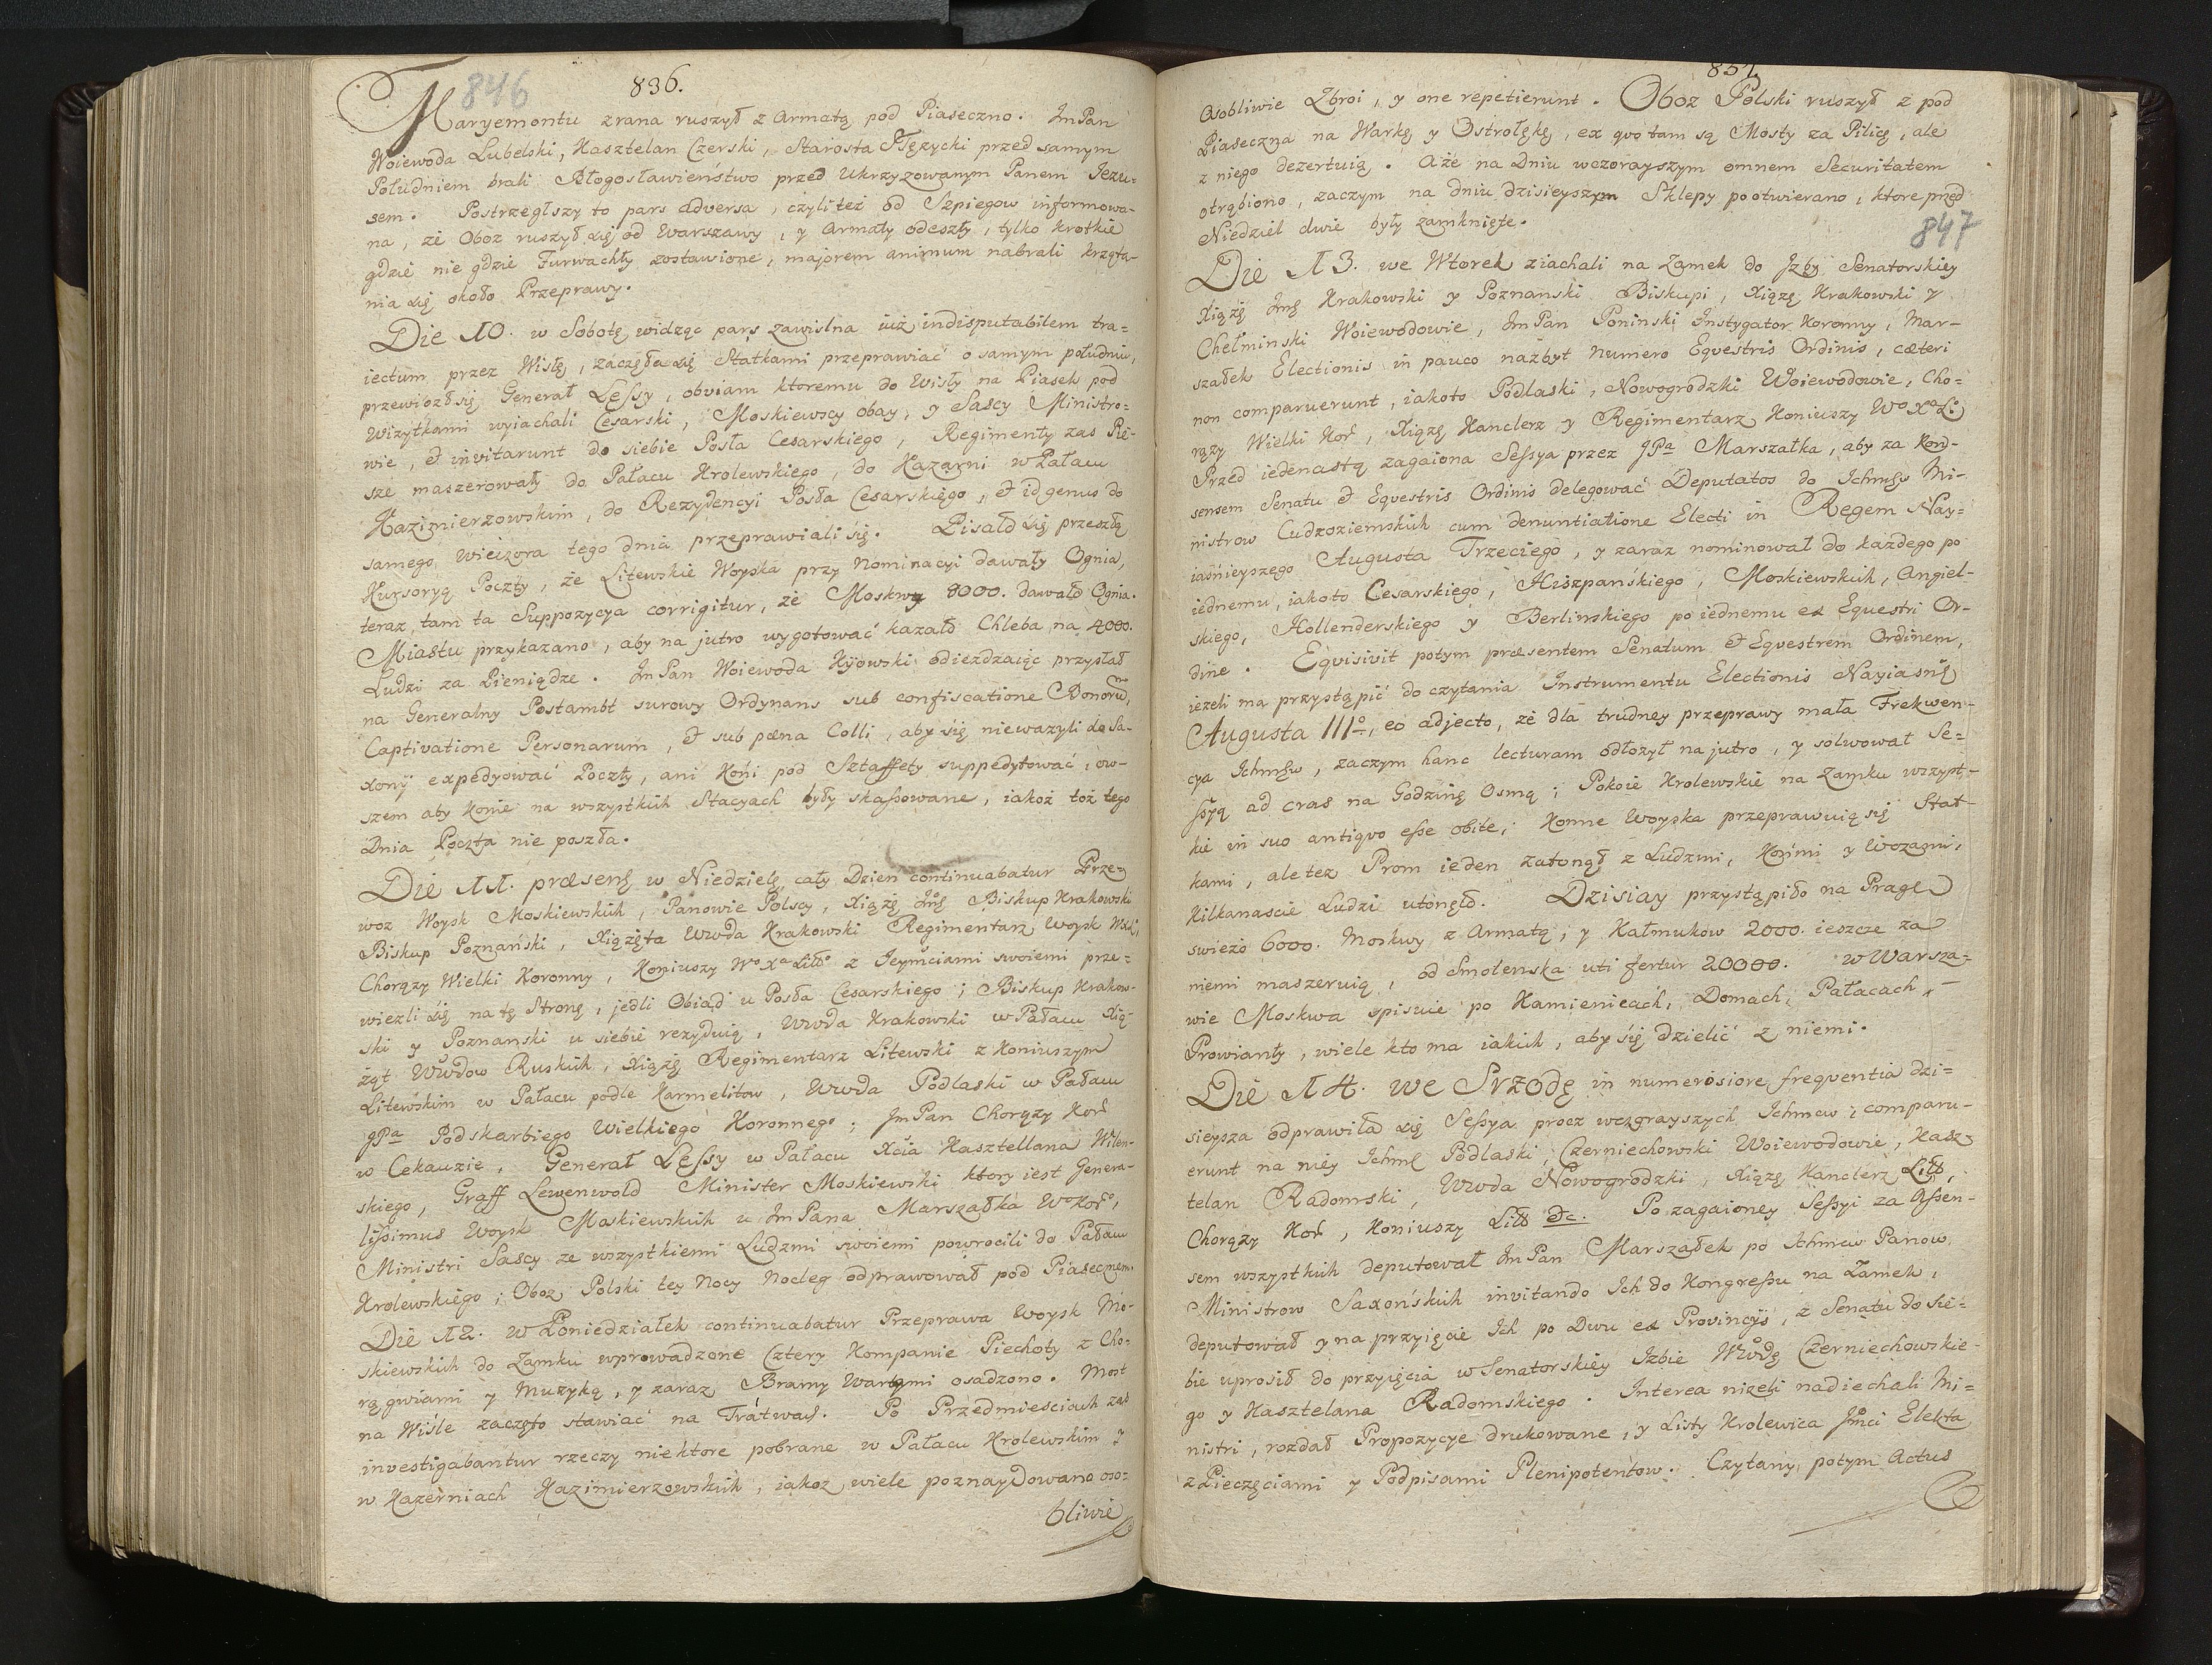 846
836.
Maryemontu zrana ruszył z Armatą pod Piaseczno. Jm Pan
Woiewoda Lubelski, Kasztelan Czerski, Starosta Stężycki przed samym
Południem brali Błogosławieństwo przed Ukrzyzowanym Panem Jezu=
sem. Postrzegłszy to pars adversa, czyli też od Szpiegow informowa-
na, że Oboz ruszył się od Warszawy, y Armaty odeszły, tylko krotkie
gdzie nie gdzie Furwachty zostawione, majorem animum nabrali krząta-
nia się około Przeprawy.
Die 10. w Sobotę widząc pars zawislna iuż indisputabilem tra=
iectum przez Wisłę, zaczęła się Statkami przeprawiać o samym południu,
przewiozł się Generał Lessy, obviam ktoremu do Wisły na Piasek pod
Wizytkami wyiachali Cesarski, Moskiewscy obay, y Sascy Ministro=
wie, et invitarunt do siebie Posła Cesarskiego, Regimenty zas Pie-
sze maszerowały do Pałacu Krolewskiego, do Kazarni w Pałacu
Kazimierzowskim, do Rezydencyi Posła Cesarskiego, et id genus do
samego Wieczora tego dnia przeprawiali się. Pisało się przeszłą
Kursoryą Poczty, że Litewskie Woyska przy Nominacyi dawały Ognia,
teraz tam ta Suppozycya corrigitur, że Moskwy 8000. dawało Ognia.
Miastu przykazano, aby na jutro wygotować kazało Chleba na 4000.
Ludzi za Pieniądze. Jm Pan Woiewoda Kyowski odiezdzaiąc przysłał
na Generalny Postambt surowy Ordynans sub confiscatione Bonorũ,
Captivatione Personarum, et sub pæna Colli, aby się niewazyli do Sa-
xonij expedyować Poczty, ani Koni pod Sztaffety suppedytować; ow-
szem aby Konie na wszystkich Stacyach były skassowane, iakoż toż tego
Dnia Poczta nie poszła.
Die 11. præsens w Niedzielę cały Dzien continuabatur Prze-
woz Woysk Moskiewskich, Panowie Polscy, Xiążę Jmć Biskup Krakowski
Biskup Poznański, Xiążęta Wwda Krakowski Regimentarz Woysk
Chorązy Wielki Koronny, Koniuszy Wo Xa Litto z Jeymciami swoiemi prze=
wiezli się na tę Stronę, jedli Obiad u Posła Cesarskiego; Biskup Krakow-
ski y Poznanski u siebie rezyduią, Wwda Krakowski w Pałacu Xią-
żąt Wwdow Ruskich, Xiążę Regimentarz Litewski z Koniuszym
Litewskim w Pałacu podle Karmelitow, Wwda Podlaski w Pałacu
JPa Podskarbiego Wielkiego Koronnego; Jm Pan Chorąży Kor̃
w Cekauzie, Generał Lessy w Pałacu Xcia Kasztellana Wilen-
skiego, Graff Lewenwold Minister Moskiewski ktory iest Genera-
lissimus Woysk Moskiewskich u Jm Pana Marszałka Wo Koro,
Ministri Sascy ze wszystkiemi Ludzmi swoiemi powrocili do Pałacu
Krolewskiego; Oboz Polski tey Nocy Nocleg odprawował pod Piasecznem.
Die 12. w Poniedziałek continuabatur Przeprawa Woysk Mo-
skiewskich do Zamku wprowadzone Cztery Kompanie Piechoty z Cho-
rągwiami y Muzyką, y zaraz Bramy Wartami osadzono. Most
na Wiśle zaczęto stawiać na Trátwach. Po Przedmiesciach zas
investigabantur rzeczy niektore pobrane w Pałacu Krolewskim y
w Kazerniach Kazimierzowskich, iakoz wiele poznaydowano oso=
bliwie
857.
Osobliwie Zbroi, y one repetierunt. Oboz Polski ruszył z pod
Piaseczna na Warkę y Ostrołękę, ex quo tam są Mosty za Pilicę, ale
z niego dezertuią. A że na Dniu wczorayszym omnem Securitatem
otrąbiono, zaczym na dniu dzisieyszym Sklepy pootwierano, ktore przed
Niedziel dwie były zamknięte.
847
Die 13. we Wtorek ziachali na Zamek do Izby Senatorskiey
Xiążę Jmć Krakowski y Poznanski Biskupi, Xiążę Krakowski y
Chełminski Woiewodowie, Jm Pan Poninski Instygator Koronny, Mar-
szałek Electionis in pauco nazbyt Numero Eqvestris Ordinis, cæteri
non comparuerunt, iakoto Podlaski, Nowogrodzki Woiewodowie, Cho=
rąży Wielki Kor̃, Xiążę Kanclerz y Regimentarz Koniuszy Wo Xa Lo
Przed iedenastą zagaiona Sessya przez JPa Marszałka, aby za Kon-
sensem Senatu et Eqvestris Ordinis delegować Deputatos do Ichmsw Mi-
nistrow Cudzoziemskich cum denuntiatione Electi in Regem Nay=
iaśnieyszego Augusta Trzeciego, y zaraz nominował do każdego po
iednemu, iakoto Cesarskiego, Hiszpańskiego, Moskiewskich, Angiel-
skiego, Hollenderskiego y Berlinskiego po iednemu ex Equestri Or-
dine. Eqvisivit potym præsentem Senatum et Eqvestrem Ordinem,
ieżeli ma przystąpić do czytania Instrumentu Electionis Nayiasnie
Augusta IIIo, eo adjecto, że dla trudney przeprawy mała Frekwen-
cya Ichmsw, zaczym hanc lecturam odłożył na jutro, y solwował Se=
ssyą ad cras na Godzinę Osmą; Pokoie Krolewskie na Zamku wszyst-
kie in suo antiqvo esse obite; Konne Woyska przeprawuią się Stat-
kami, ale też Prom ieden zatonął z Ludzmi, Końmi y Wozami,
Kilkanascie Ludzi utonęło. Dzisiay przystąpiło na Pragę
swieżo 6000. Moskwy z Armatą, y Kałmukow 2000. ieszcze za
niemi maszeruią, od Smolenska uti fertur 20000. w Warsza=
wie Moskwa spisuie po Kamienicach, Domach, Pałacach
Prowianty, wiele kto ma iakich, aby się dzielić z niemi.
Die 14. we Srzodę in numerosiore freqventia dzi=
sieysza odprawiła się Sessya procz wczorayszych Ichmcw; comparu-
erunt na niey Ichmć Podlaski, Czerniechowski Woiewodowie, Kasz-
telan Radomski, Wwda Nowogrodzki, Xiążę Kanclerz Litt,
Chorąży Kor̃, Koniuszy Litt etc. Po zagaioney Sessyi za Assen-
sem wszystkich deputował Jm Pan Marszałek po Ichmcw Panow
Ministrow Saxońskich invitando Ich do Kongressu na Zamek,
deputował y na przyięcie Ich po Dwu ex Provincÿs, z Senatu do Sie=
bie uprosił do przyięcia w Senatorskiey Izbie Wwdę Czerniechowskie-
go y Kasztelana Radomskiego. Interea nizeli nadiechali Mi=
nistri, rozdał Propozycye drukowane, y Listy Krolewica Jmci Elekta
z Pieczęciami y Podpisami Plenipotentow. Czytany potym Actus